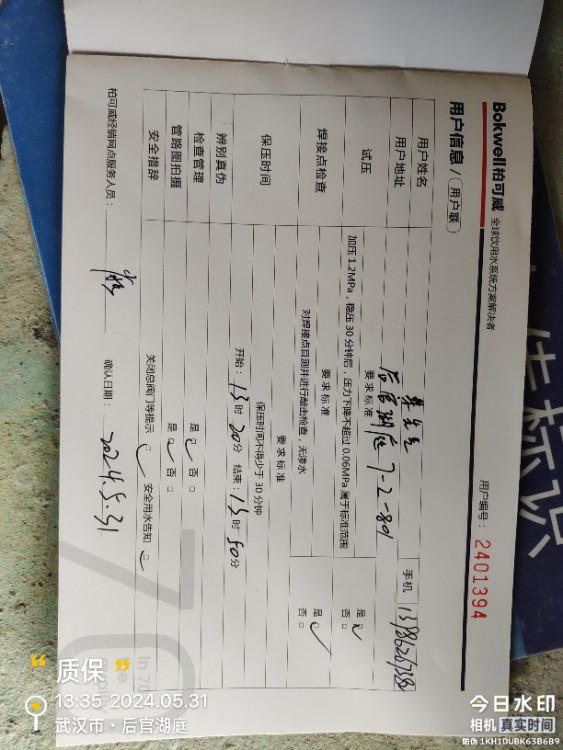 Bokwell柏可威 全球饮用水系统方案解决者
用户编号： 2401394
用户信息 / 用户联
用户姓名
手机
用户地址 后官湖庭 7-2-801
试压 要求标准
加压 1.2MPa，稳压 30 分钟后，压力下降不超过 0.06MPa 属于标准范围
是 ☑
否 □
焊接点检查 要求标准
对焊接点目测并进行敲击检查，无渗水
是 ☑
否 □
保压时间 要求标准
保压时间不得少于 30 分钟
开始： 13 时 20 分 结束： 13 时 50 分
辨别真伪
检查管理 是 ☑ 否 □
管路图拍摄 是 ☑ 否 □
安全措辞 关闭总阀门等提示 ☑ 安全用水告知 ☑
柏可威经销网点服务人员：
确认日期： 2024.5.31
70
In 70
告标识
质保
13:35 2024.05.31
武汉市 · 后官湖庭
今日水印
相机 真实时间
防伪 1KH1DUBK63B6B9